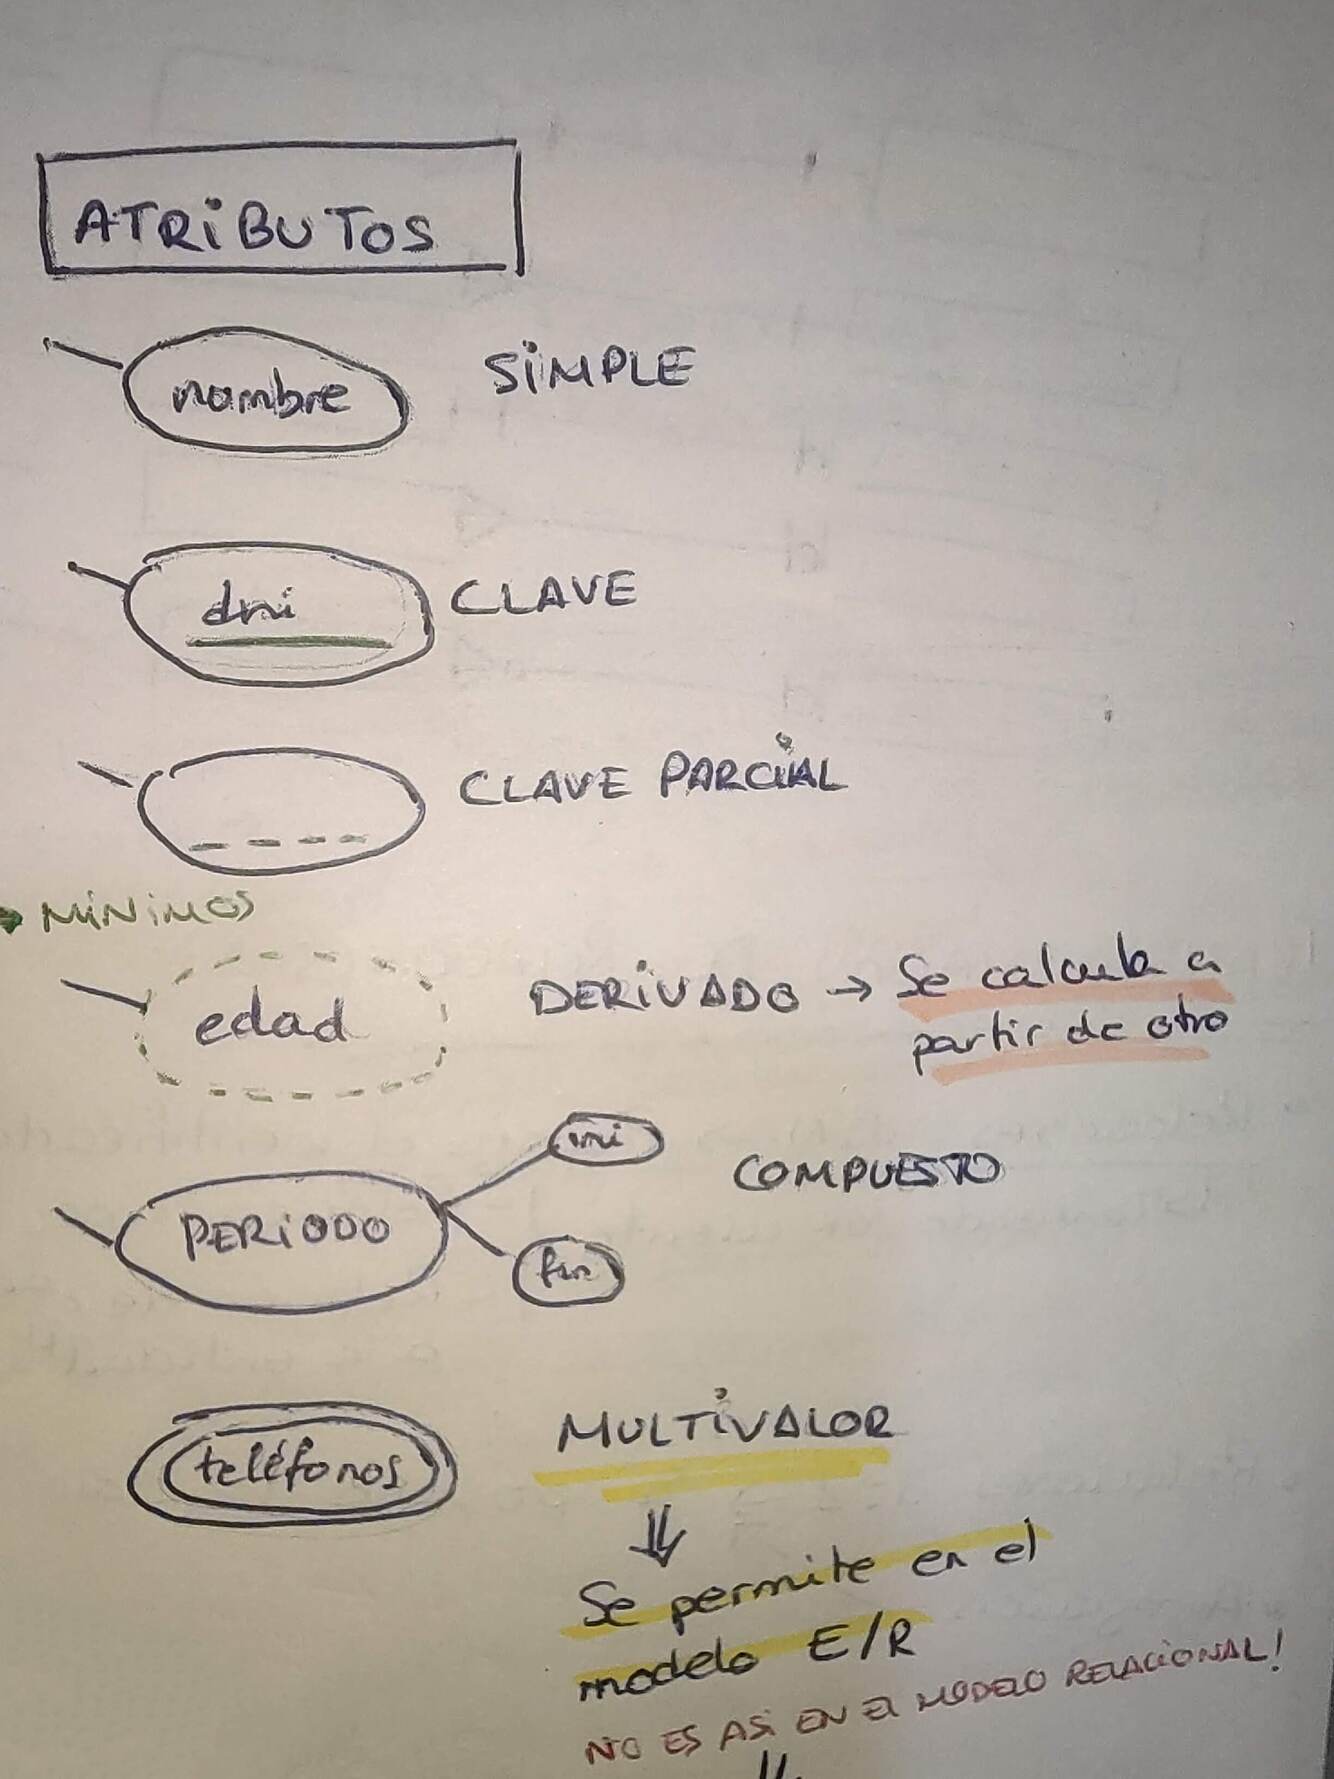 ATRIBUTOS
nombre SIMPLE
dni CLAVE
CLAVE PARCIAL
MÍNIMOS
edad DERIVADO → Se calcula a
partir de otro
ini
PERIODO COMPUESTO
fin
teléfonos MULTIVALOR
⇓
Se permite en el
modelo E/R
NO ES ASÍ EN EL MODELO RELACIONAL!